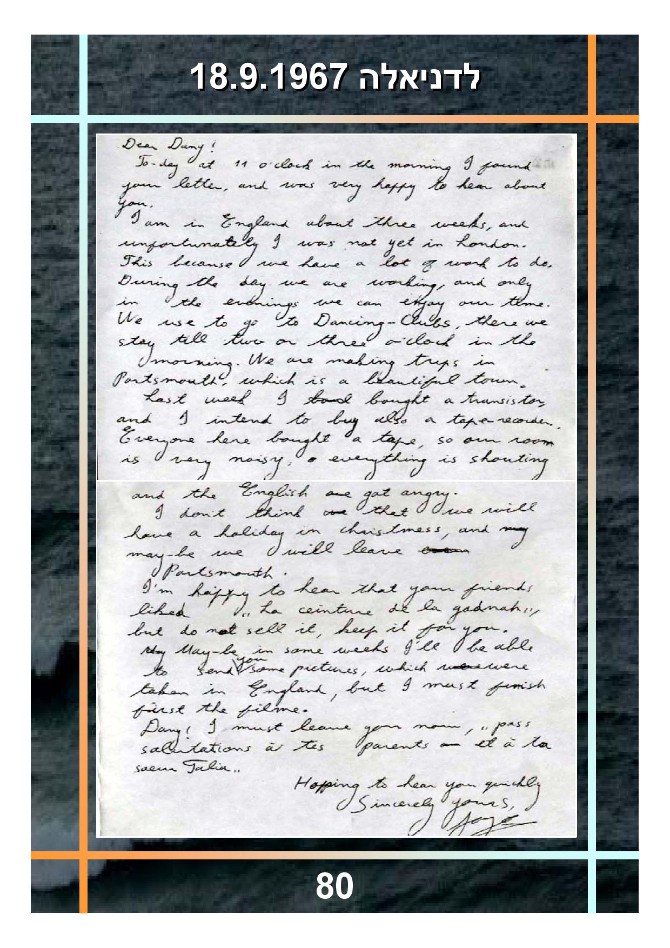 לדניאלה 18.9.1967
Dear Dany!
To-day at 11 o'clock in the morning I found
your letter, and was very happy to hear about
you.
I am in England about three weeks, and
unfortunately I was not yet in London.
This because we have a lot of work to do.
During the day we are working, and only
in the evenings we can enjoy our time.
We use to go to Dancing-Clubs, there we
stay till two or three o'clock in the
morning. We are making trips in
Portsmouth, which is a beautiful town.
Last week I bought a transistor,
and I intend to buy also a tape-recorder.
Everyone here bought a tape, so our room
is very noisy, everything is shouting
and the English got angry.
I don't think that we will
have a holiday in christmess, and
may-be we will leave
Portsmouth.
I'm happy to hear that your friends
liked „La ceinture de la gadnah„,
but do not sell it, keep it for you.
May-be, in some weeks I'll be able
to send you some pictures, which were
taken in England, but I must finish
first the filme.
Dany! I must leave you now, „pass
salutations à tes parents et à ta
soeur Talia„
Hopping to hear you quickly
Sincerely yours,
80